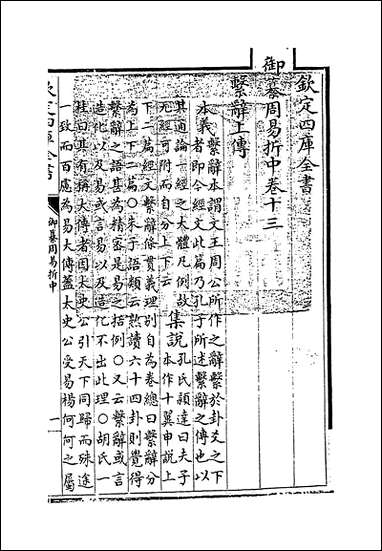 欽定四庫全書
御纂周易折中卷十三
繫辭上傳
本義
繫辭本謂文王周公所作之辭繫於卦爻之下
者即今經文此篇乃孔子所述繫辭之傳也以
其通論一經之大體凡例故
无經可附而自分上下云
集說
孔氏穎達曰夫子
本作十翼申說上
下二篇經文繫辭條貫義理別自為卷總曰繫辭分
為上下二篇○朱子語類云熟讀六十四卦則覺得
繫辭之語甚為精密是易之括例○又云繫辭或言
造化以及易或言易以及造化不出此理○胡氏一
桂曰其有稱大傳者因太史公引天下同歸而殊途
一致而百慮為易大傳蓋太史公受易楊何何之屬
欽定四庫全書
御纂周易折中
一